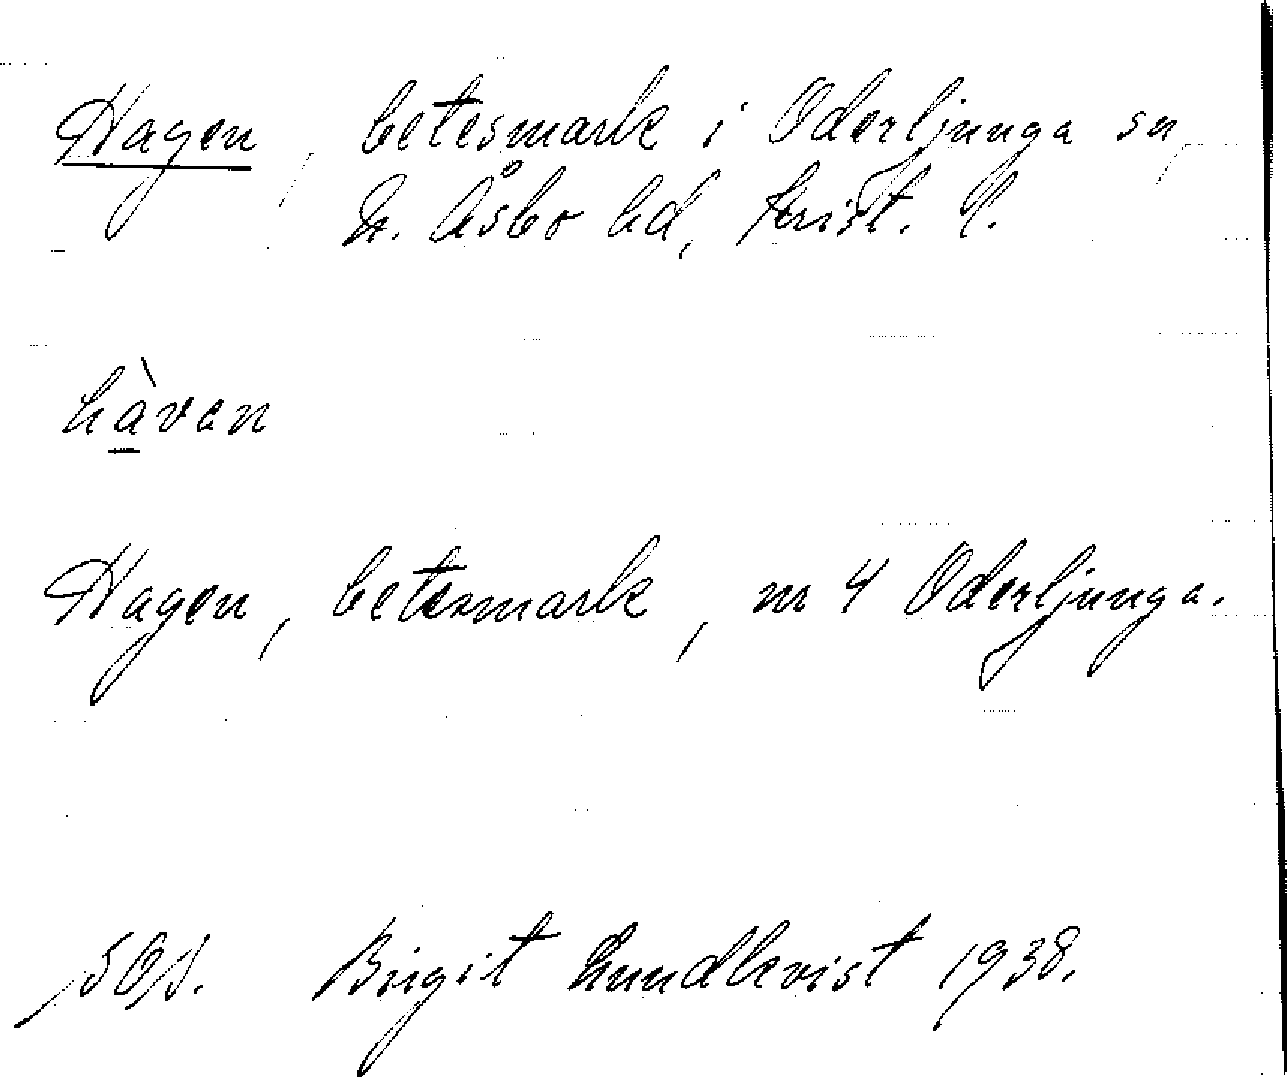 Hagen, betesmark i Oderljunga sn,
N. Åsbo hd, Krist. l.
hàvan
Hagen, betesmark, nr 4 Oderljunga.
Birgit Lundkvist 1938.